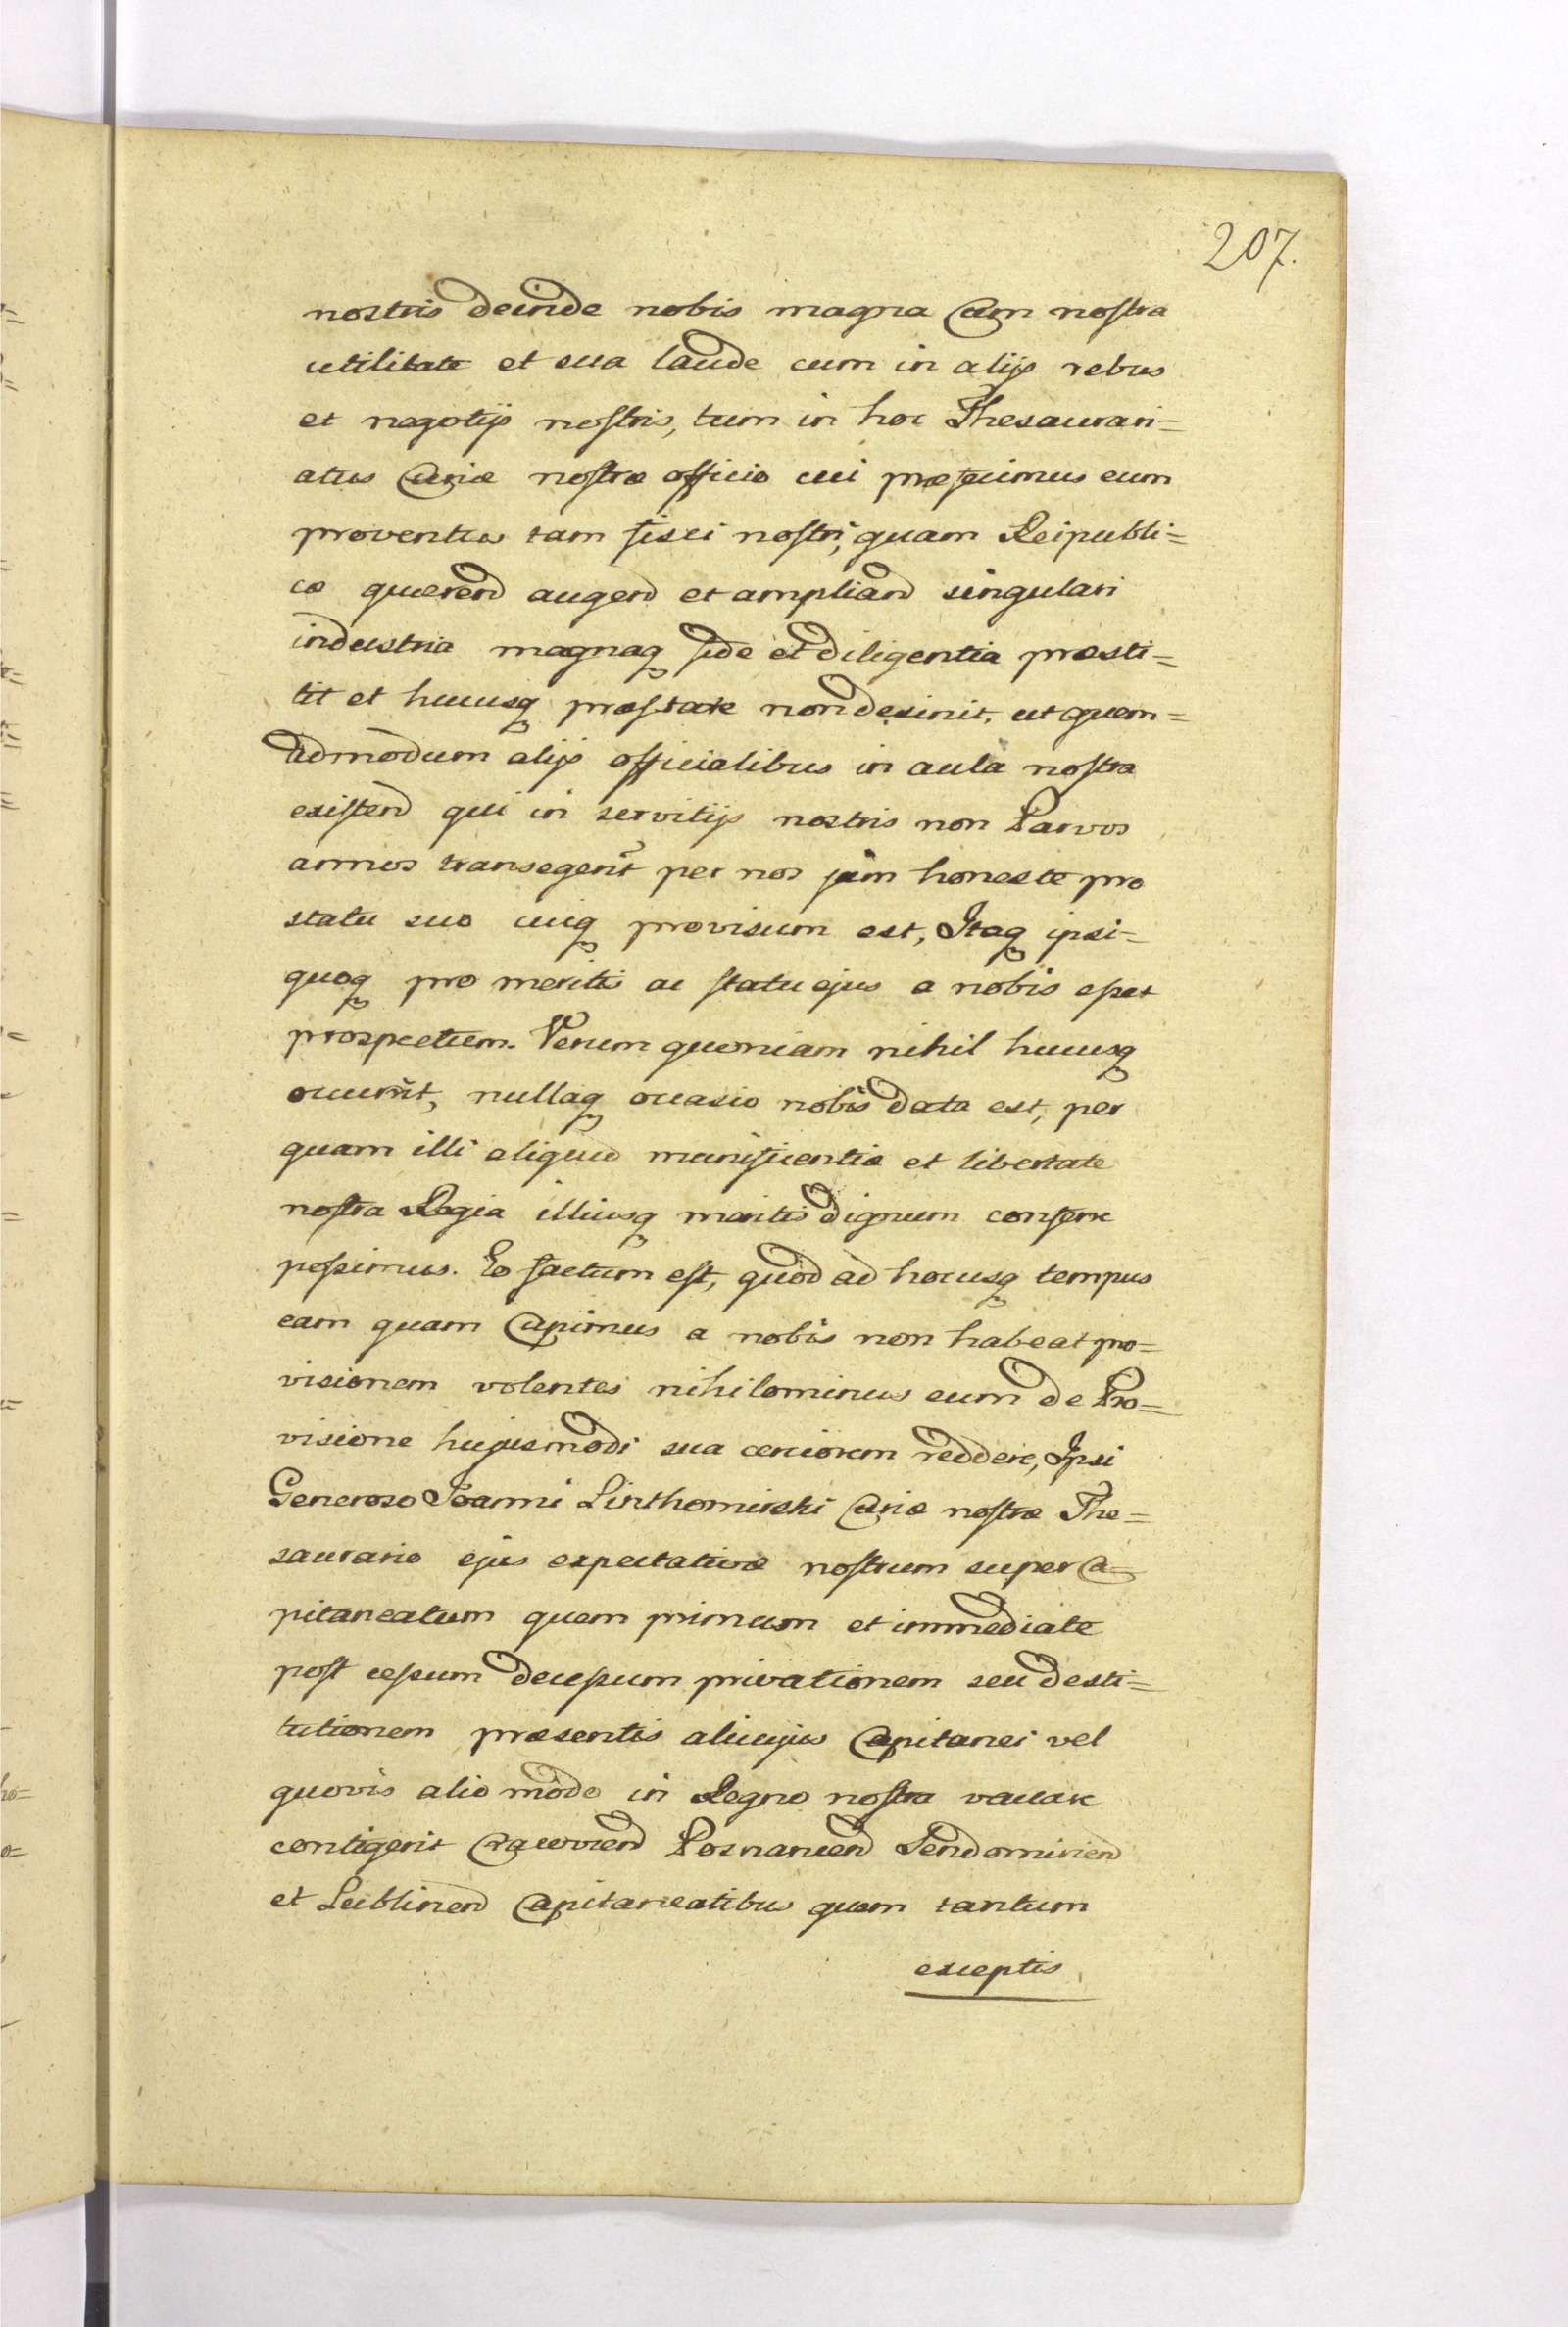 207.
nostris deinde nobis magna Cum nostra
utilitate et sua laude cum in alijs rebus
et negotijs nostris, tum in hoc Thesaurari=
atus Curiæ nostræ officio cui præfecimus eum
proventus tam fisci nostri, quam Reipubli=
cæ querend augend et ampliand singulari
industria magnaq fide et diligentia præsti=
tit et hucusq præstare non desinit, ut quem=
admodum alijs officialibus in aula nostra
existend qui in servitijs nostris non Parvos
annos transegerũt per nos jam honeste pro
statu suo cuiq provisum est, Itaq ipsi=
quoq pro meritis ac statu ejus a nobis esset
prospectum. Verum quoniam nihil hucusq
occurrit, nullaq occasio nobis data est, per
quam illi aliquid munificentiæ et libertate
nostra Regia illiusq meritis dignum conferre
possimus. Eo factum est, quod ad hocusq tempus
eam quam Cupimus a nobis non habeat pro=
visionem volentes nihilominus eum de Pro=
visione hujusmodi sua certiorem reddere, Ipsi
Generoso Joanni Linthomirski Curiæ nostræ The=
saurario ejus expectativæ nostrum super Ca=
pitaneatum quem primum et immediate
post cessum decessum privationem seu desti=
tutionem præsentis alicujus Capitanei vel
quovis alio modo in Regno nostra vacare
contigerit Cracoviend Posnaniend Sendomiriend
et Lublinend Capitaneatibus quam tantum
exceptis